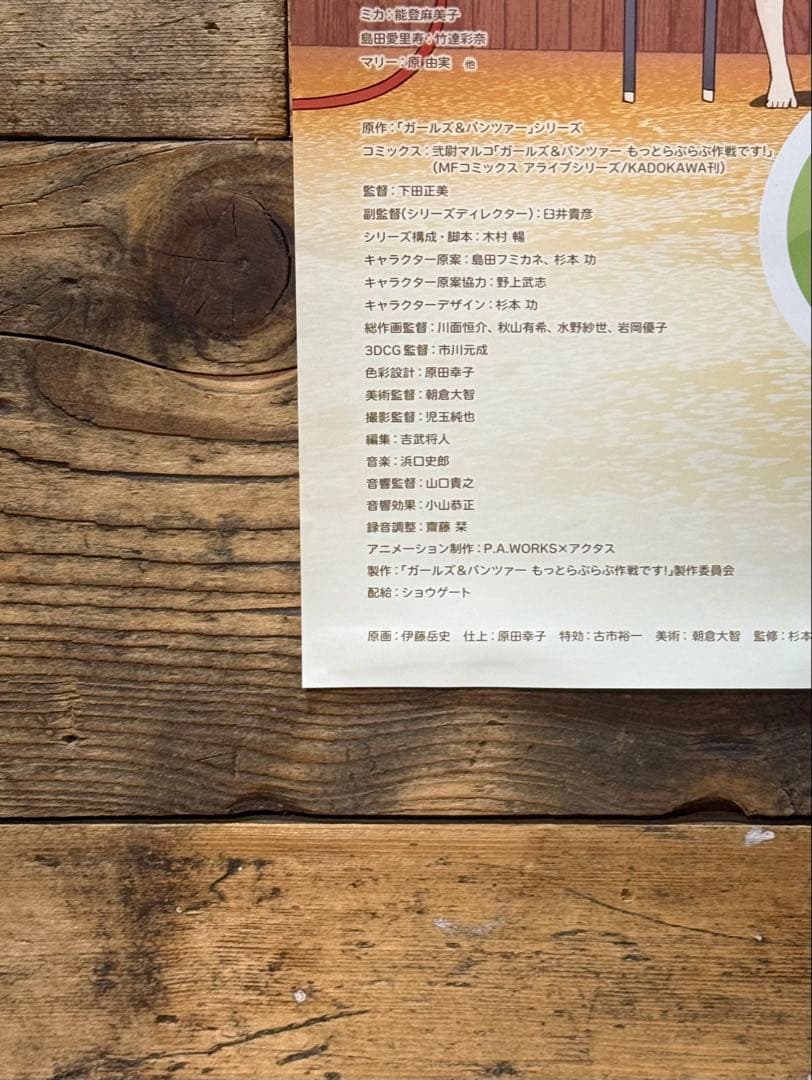 ミカ：能登麻美子
島田愛里寿：竹達彩奈
マリー：原 由実　他
原作：「ガールズ＆パンツァー」シリーズ
コミックス：弐尉マルコ「ガールズ＆パンツァー もっとらぶらぶ作戦です！」
（MFコミックス アライブシリーズ/KADOKAWA刊）
監督：下田正美
副監督（シリーズディレクター）：臼井貴彦
シリーズ構成・脚本：木村 暢
キャラクター原案：島田フミカネ、杉本 功
キャラクター原案協力：野上武志
キャラクターデザイン：杉本 功
総作画監督：川面恒介、秋山有希、水野紗世、岩岡優子
3DCG監督：市川元成
色彩設計：原田幸子
美術監督：朝倉大智
撮影監督：児玉純也
編集：吉武将人
音楽：浜口史郎
音響監督：山口貴之
音響効果：小山恭正
録音調整：齋藤 栞
アニメーション制作：P.A.WORKS×アクタス
製作：「ガールズ＆パンツァー もっとらぶらぶ作戦です！」製作委員会
配給：ショウゲート
原画：伊藤岳史　仕上：原田幸子　特効：古市裕一　美術：朝倉大智　監修：杉本